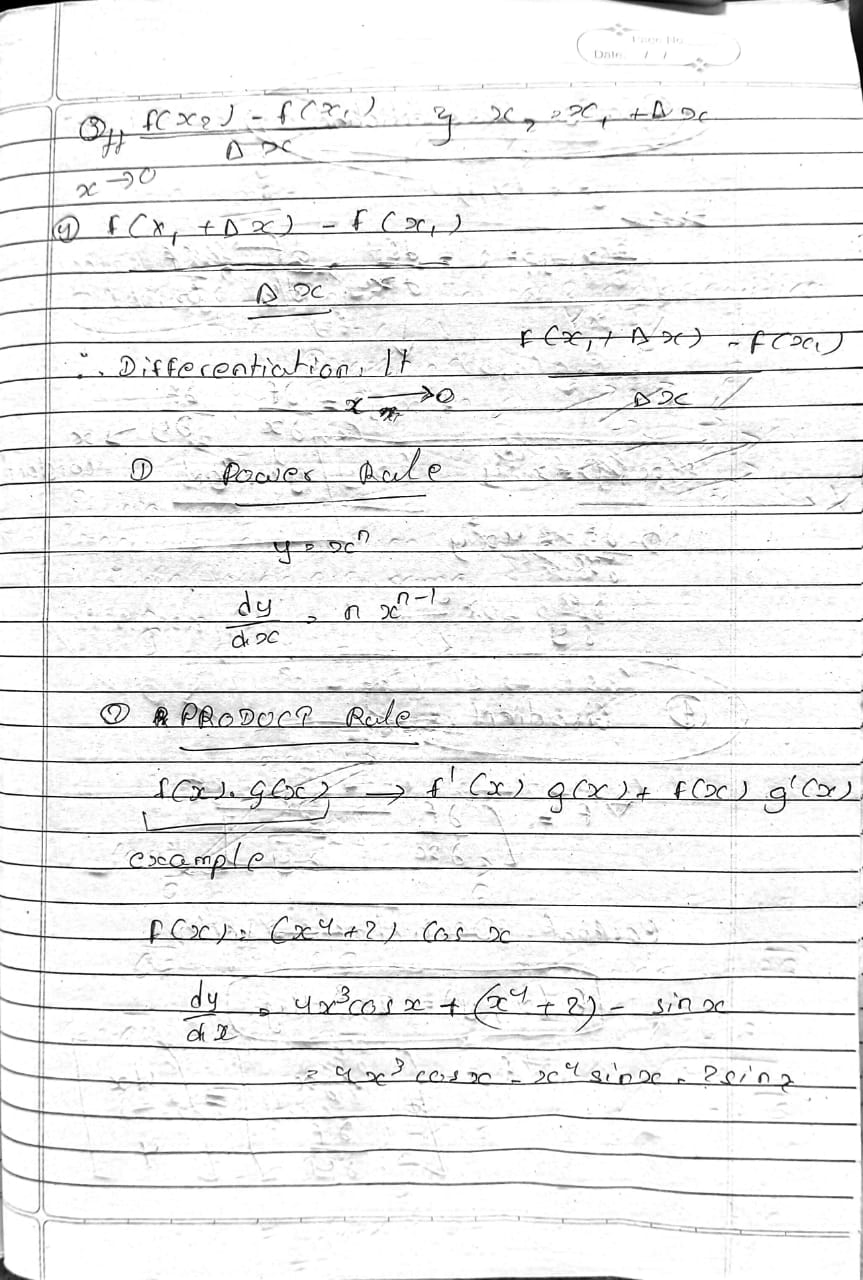 Page No.
Date / /
③ lt f(x₂) - f(x₁) / Δx } x₂ = x₁ + Δx
x → 0
④ f(x₁ + Δx) - f(x₁)
Δx
∴ Differentiation, lt f(x₁ + Δx) - f(x₁)
= x → 0 Δx
① Power Rule
y = xⁿ
dy/dx = n xⁿ⁻¹
② PRODUCT Rule
f(x). g(x) → f'(x) g(x) + f(x) g'(x)
example
f(x) = (x⁴+2) cos x
dy/dx = 4x³cos x + (x⁴ + 2) - sin x
= 4x³ cos x - x⁴ sin x - 2sin x